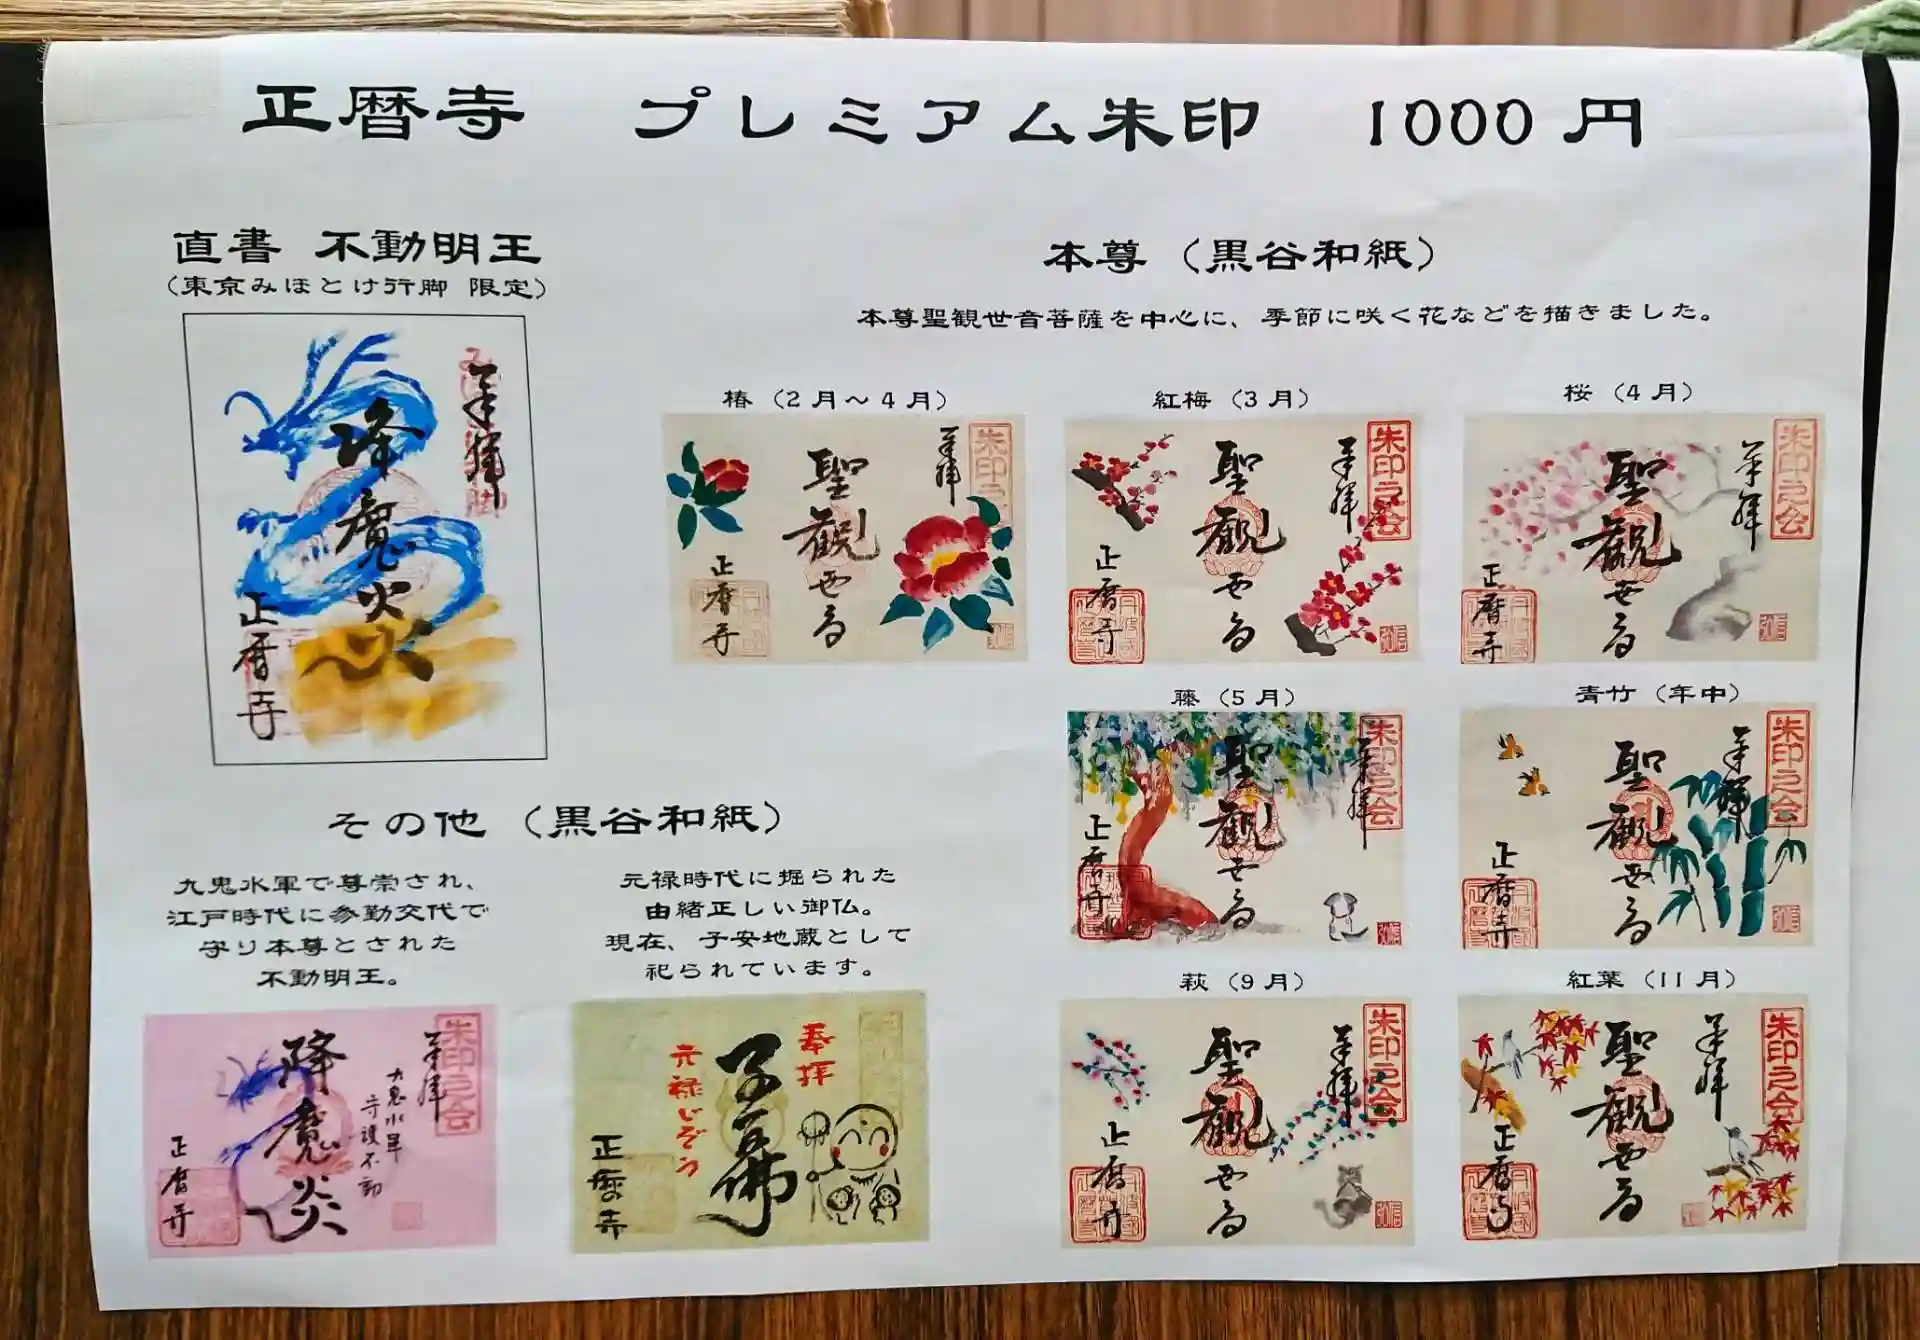 正暦寺 プレミアム朱印 1000円
直書 不動明王
（東京みほとけ行脚 限定）
奉拝
降魔炎
正暦寺
本尊（黒谷和紙）
本尊聖観世音菩薩を中心に、季節に咲く花などを描きました。
椿（2月～4月）
朱印之会
奉拝
聖観世音
正暦寺
紅梅（3月）
朱印之会
奉拝
聖観世音
正暦寺
桜（4月）
朱印之会
奉拝
聖観世音
正暦寺
藤（5月）
朱印之会
奉拝
聖観世音
正暦寺
青竹（年中）
朱印之会
奉拝
聖観世音
正暦寺
萩（9月）
朱印之会
奉拝
聖観世音
正暦寺
紅葉（11月）
朱印之会
奉拝
聖観世音
正暦寺
その他（黒谷和紙）
九鬼水軍で尊崇され、
江戸時代に参勤交代で
守り本尊とされた
不動明王。
朱印之会
奉拝
九鬼水軍
守護不動
降魔炎
正暦寺
元禄時代に掘られた
由緒正しい御仏。
現在、子安地蔵として
祀られています。
奉拝
子安佛
元禄じぞう
正暦寺